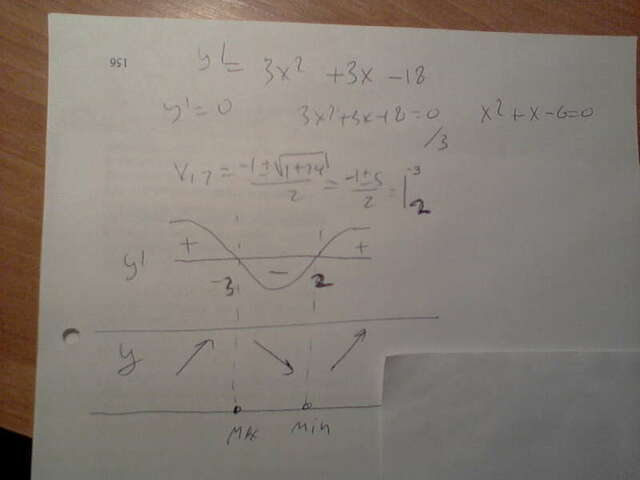 156
y'= 3x² +3x -18
y'=0 3x²+3x-18=0 x²+x-6=0
/3
x₁,₂ = (-1±√(1+24))/2 = (-1±5)/2 = | -3 2
+ − +
y' -3 2
y
max min